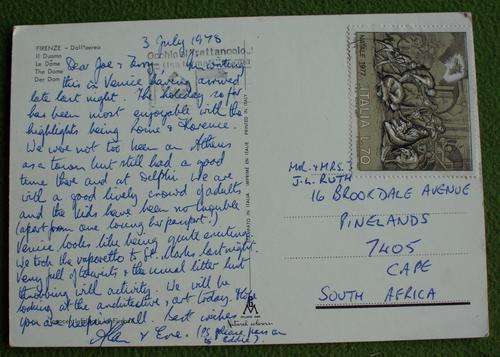 FIRENZE - Dall'aereo
Il Duomo
Le Dôme
The Dome
Der Dom
3 July 1978
Dear Joe & Tony, I'm writing
this in Venice having arrived
late last night. The holiday so far
has been most enjoyable with the
highlights being Rome & Florence.
We were not too keen on Athens
as a town but still had a good
time there and at Delphi. We are
with a good lively crowd of adults
and the kids have been no trouble
(apart from one losing her passport!)
Venice looks like being quite exciting.
We took the vaporetto to St. Marks last night.
Very full of tourists & the usual litter but
throbbing with activity. We will be
looking at the architecture & art today. Hope
you are keeping well. Best wishes
Alan & Eve. (PS please pass on
to Eddie)
rettangolo
NATALE 1977
ITALIA 70
MR. & MRS.
J.L. RUTH
16 BROOKDALE AVENUE
PINELANDS
7405
CAPE
SOUTH AFRICA
PRINTED IN ITALY
IMPRIMÉ EN ITALIE
Natural colours